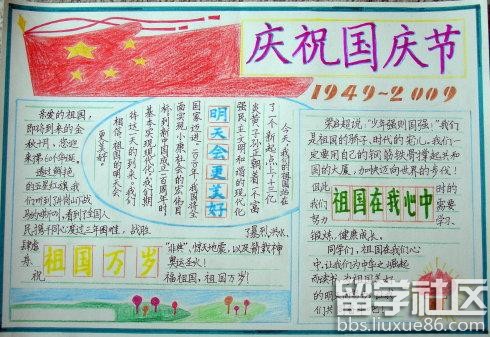 庆祝国庆节
1949~2009
亲爱的祖国,
即将到来的金
秋十月,您迎
来第60个华诞。
透过鲜艳
的五星红旗,我
民携手同心度过三年困难,战胜
了暴烈洪水、
"非典"、惊天地震,以及
奥运圣火!
福祖国,祖国万岁!
共
祝
祖国万岁
今天,我们的祖国站在
了一个新起点上,十三亿
炎黄子孙正朝着一个富
强民主文明和谐的现代化
国家迈进。
面实现小康社会的宏伟目
标,到新中国成立一百周年时
基本实现现代化。我们期
待这一天的到来,我们
相信,祖国的明天会
更美好。
明天会更美好
梁启超说:"少年强则国强!"我们
是祖国的骄子,时代的宠儿。我们一
定要用自己的钢筋铁骨撑起共和
国的大厦,加快迈向世界的步伐!
因此
我们
努力
祖国在我心中
时的
需要
学习、
锻炼,健康成长。
同学们,祖国在我们心
中,让我们为中华之崛起
而读书,为祖国美好
的明天
们共
留学社区
bbs.liuxue86.com